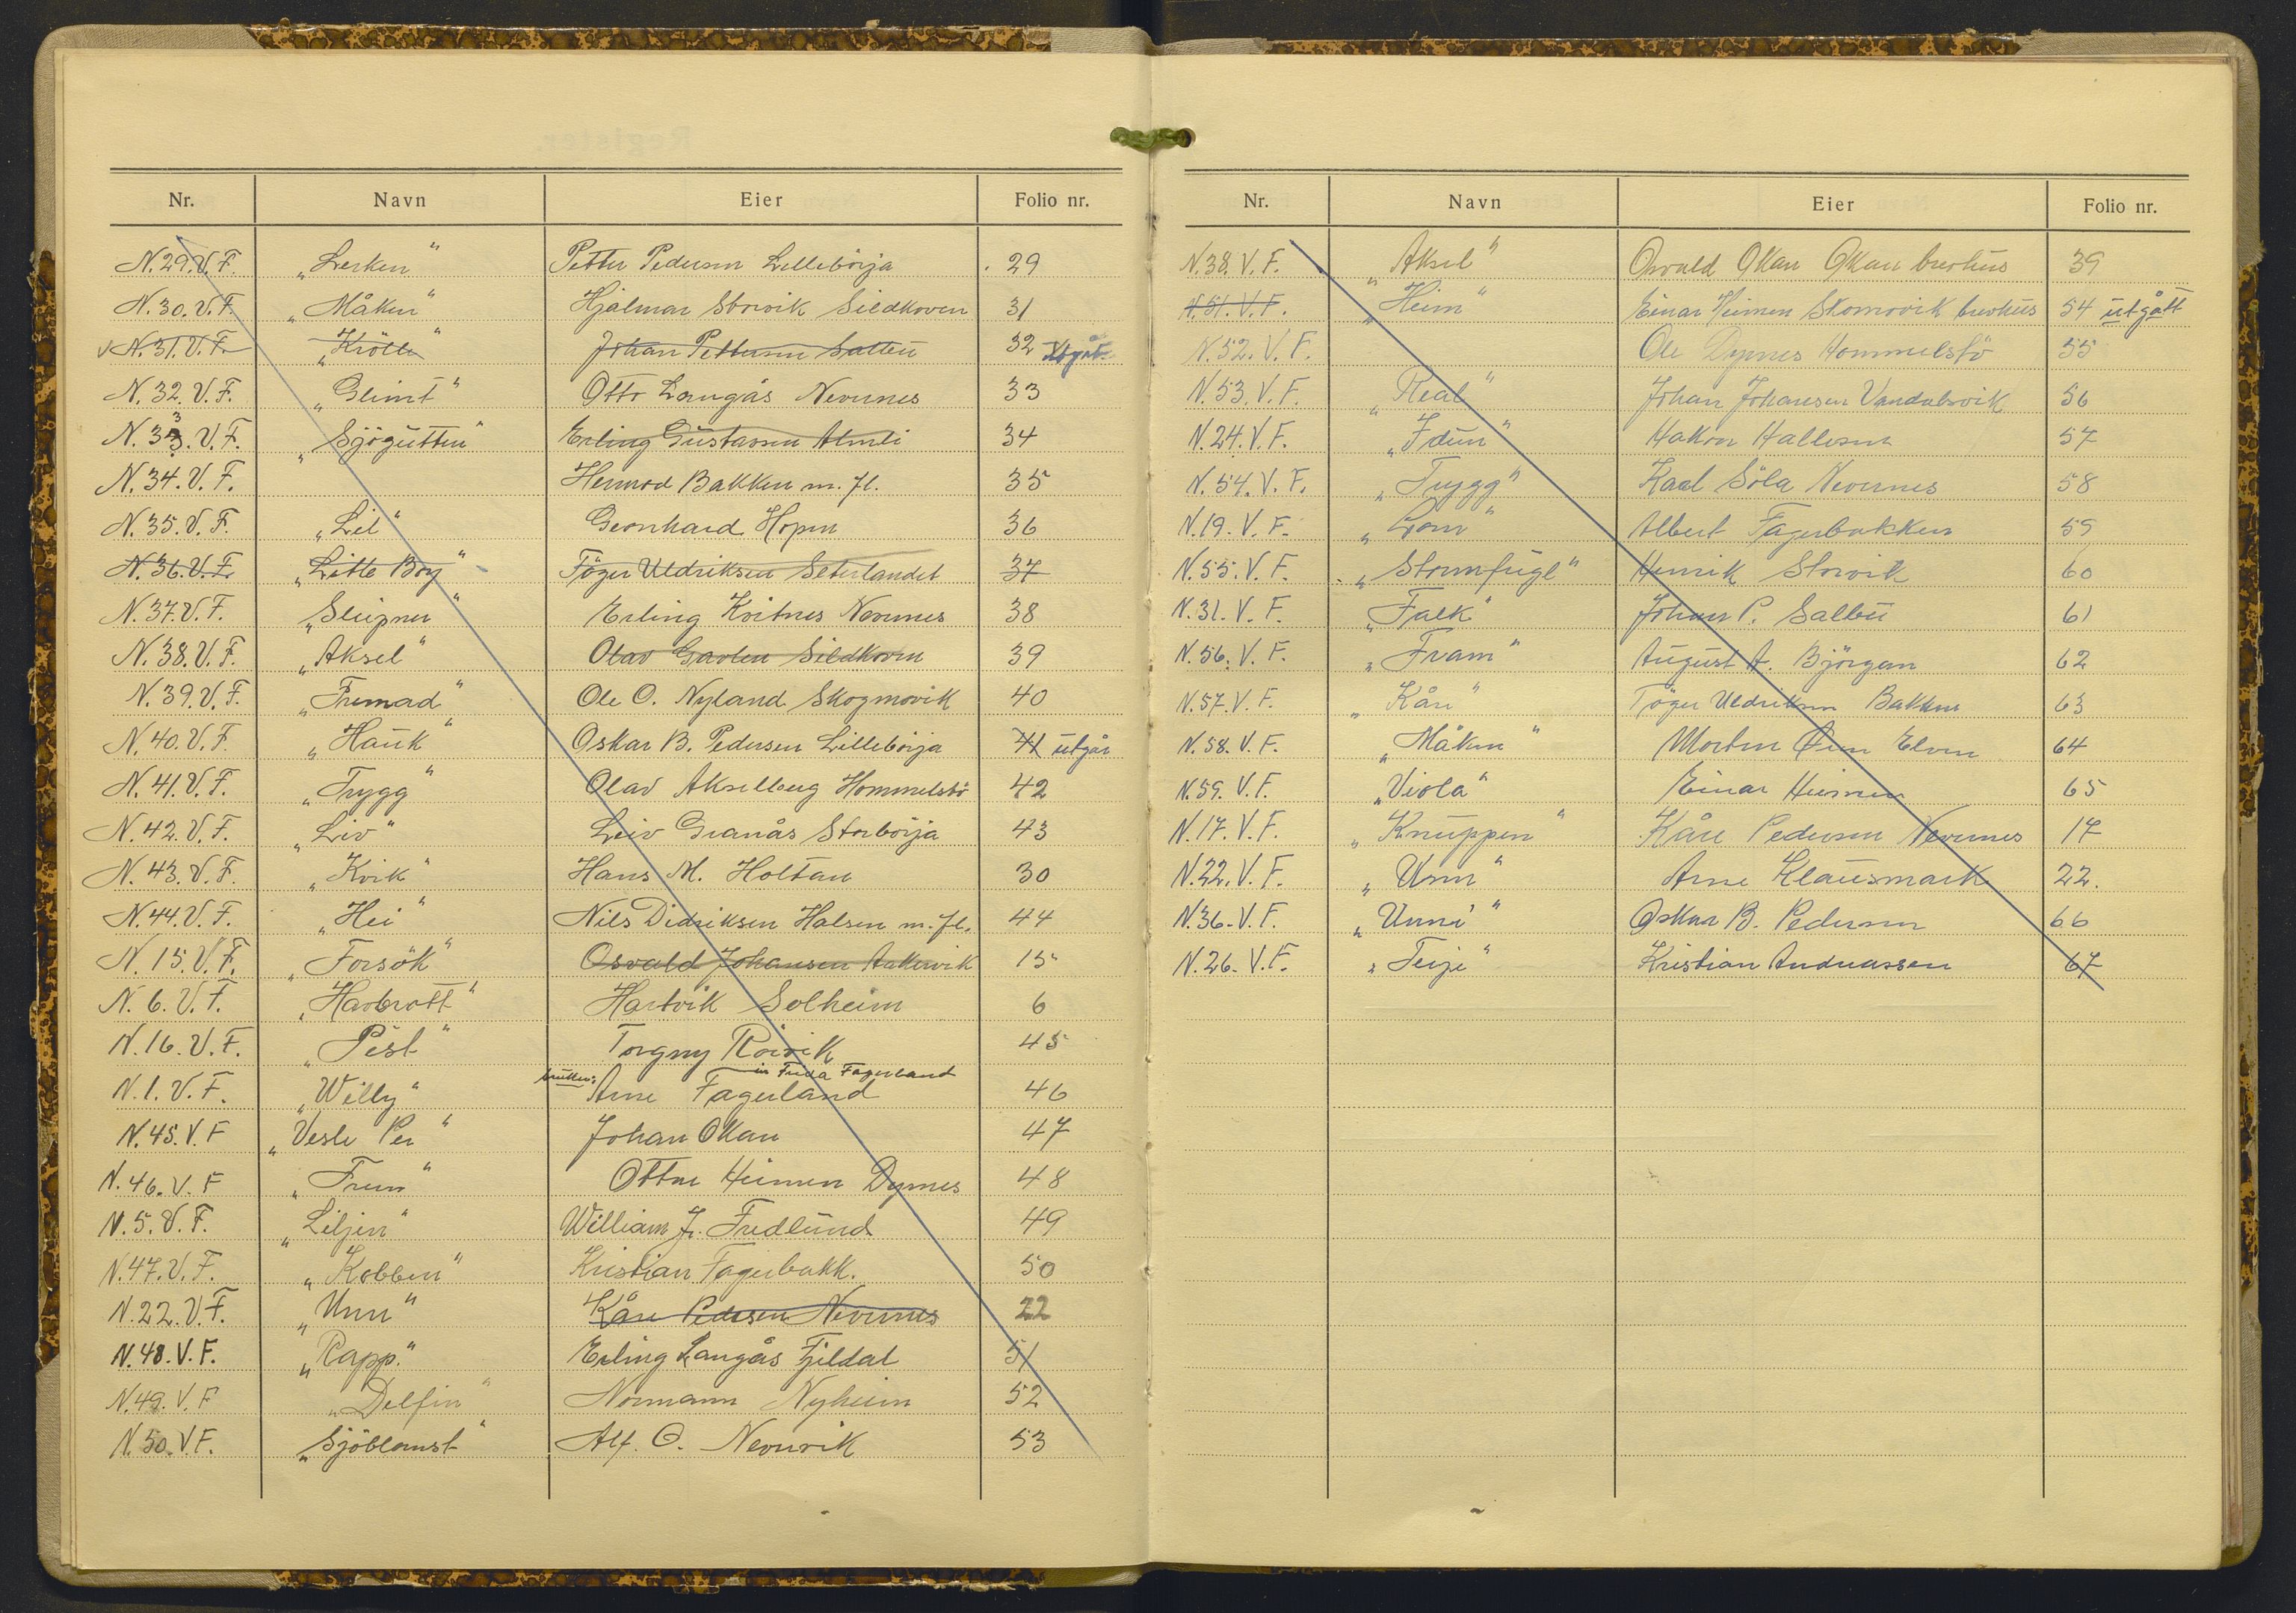 Nr. Navn Eier Folio nr.
N. 29. V. F. „Lerken" Petter Pedersen Lillebörja 29
N. 30. V. F. „Måken" Hjalmar Storvik Sildhoven 31
N. 31. V. F. „Krölle" Johan Pettersen Salbu 32 Utgår
N. 32. V. F. „Glimt" Otto Langås Nevernes 33
N. 33. V. F. „Sjögutten" Erling Gustavsen Almli 34
N. 34. V. F. Hermod Bakken m. fl. 35
N. 35. V. F. „Lil" Geonhard Hopen 36
N. 36. V. F. „Litle Boy" Töger Uldriksen Seterlandet 37
N. 37. V. F. „Sleipner" Erling Kvitnes Nevernes 38
N. 38. V. F. „Aksel" Olav Gavlen Sildhoven 39
N. 39. V. F. „Fremad" Ole O. Nyland Skogmovik 40
N. 40. V. F. „Hauk" Oskar B. Pedersen Lillebörja 41 utgår
N. 41. V. F. „Trygg" Olav Akselberg Hommelstö 42
N. 42. V. F. „Liv" Leiv Granås Storbörja 43
N. 43. V. F. „Kvik" Hans M. Holtan 30
N. 44. V. F. „Hei" Nils Didriksen Halsen m. fl. 44
N. 15. V. F. „Forsök" Osvald Johansen Aakervik 15
N. 6. V. F. „Havbrott" Hartvik Solheim 6
N. 16. V. F. „Pesl" Torgny Röivik 45
in Freda Fagerland
N. 1. V. F. „Willy" Arne Fagerland 46
N. 45. V. F „Vesle Per" Johan Okan 47
N. 46. V. F „Frem" Ottar Heimen Dypnes 48
N. 5. V. F. „Liljen" William J. Fredlund 49
N. 47. V. F. „Kobben" Kristian Fagerbakk. 50
N. 22. V. F. „Unn" Kåre Pedersen Nevernes 22
N. 48. V. F. „Rapp." Erling Langås Fjeldal 51
N. 49. V. F „Delfin" Normann Nyheim 52
N. 50. V. F. „Sjöblomst" Alf. O. Nevervik 53
Nr. Navn Eier Folio nr.
N. 38. V. F. „Aksel" Osvald Okan Okan brevhus 39
N. 51. V. F. „Heim" Einar Heimen Skomovik brevhus 54 utgått
N. 52. V. F. Ole Dypnes Hommelstö 55
N. 53. V. F. „Real" Johan Johansen Vandalsvik 56
N. 24. V. F. „Idun" Hakon Hallesen 57
N. 54. V. F. „Trygg" Karl Söla Nevernes 58
N. 19. V. F. „Lom" Albert Fagerbakken 59
N. 55. V. F. „Stormfugl" Henrik Storvik 60
N. 31. V. F. „Falk" Johan P. Salbu 61
N. 56. V. F. „Fram" August A. Björgan 62
N. 57. V. F. „Kåre" Töger Uldriksen Bakken 63
N. 58. V. F. „Måken" Morten Öien Elven 64
N. 59. V. F. „Viola" Einar Heimen 65
N. 17. V. F. „Knuppen" Kåre Pedersen Nevernes 17
N. 22. V. F. „Unn" Arne Klausmark 22.
N. 36. V. F. „Unni" Oskar B. Pedersen 66
N. 26. V. F. „Teije" Kristian Andreassen 67